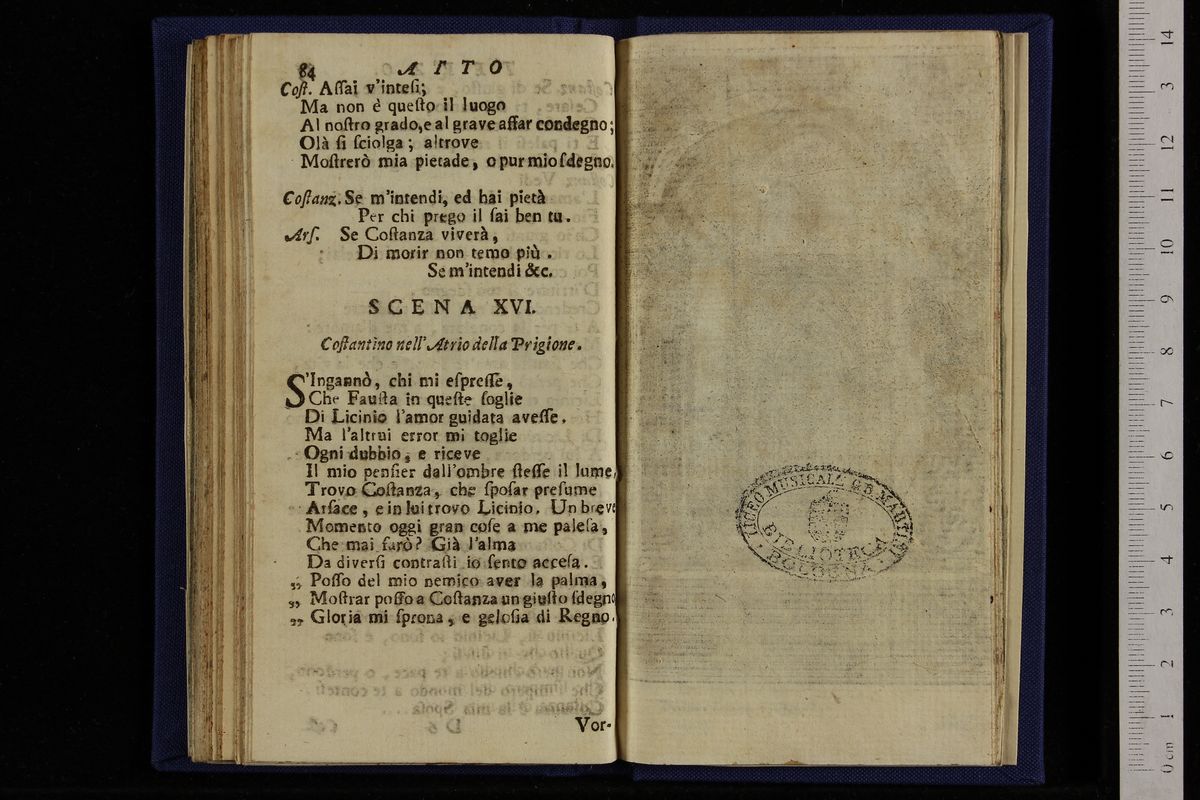 84 ATTO
Coſt. Aſſai v'inteſi;
Ma non è queſto il luogo
Al noſtro grado, e al grave affar condegno;
Olà ſi ſciolga; altrove
Moſtrerò mia pietade, o pur mio ſdegno.
Coſtanz. Se m'intendi, ed hai pietà
Per chi prego il ſai ben tu.
Arſ. Se Coſtanza viverà,
Di morir non temo più.
Se m'intendi &c.
SCENA XVI.
Coſtantino nell'Atrio della Prigione.
S'Ingannò, chi mi eſpreſſe,
Che Fauſta in queſte ſoglie
Di Licinio l'amor guidata aveſſe.
Ma l'altrui error mi toglie
Ogni dubbio, e riceve
Il mio penſier dall'ombre ſteſſe il lume,
Trovo Coſtanza, che ſpoſar preſume
Arſace, e in lui trovo Licinio. Un breve
Momento oggi gran coſe a me paleſa,
Che mai farò? Già l'alma
Da diverſi contraſti io ſento acceſa.
„ Poſſo del mio nemico aver la palma,
„ Moſtrar poſſo a Coſtanza un giuſto ſdegno
„ Gloria mi ſprona, e geloſia di Regno.
Vor-
LICEO MUSICALE G.B. MARTINI
BIBLIOTECA
BOLOGNA
0 cm 1 2 3 4 5 6 7 8 9 10 11 12 3 14